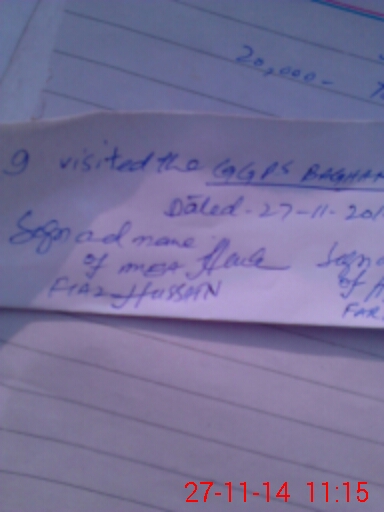 20,000-
I visited the GGPS BAGHAN
Dated-27-11-201
Sign and name
of MEA
FIAZ HUSSAIN
Sign
of
FAR
27-11-14 11:15